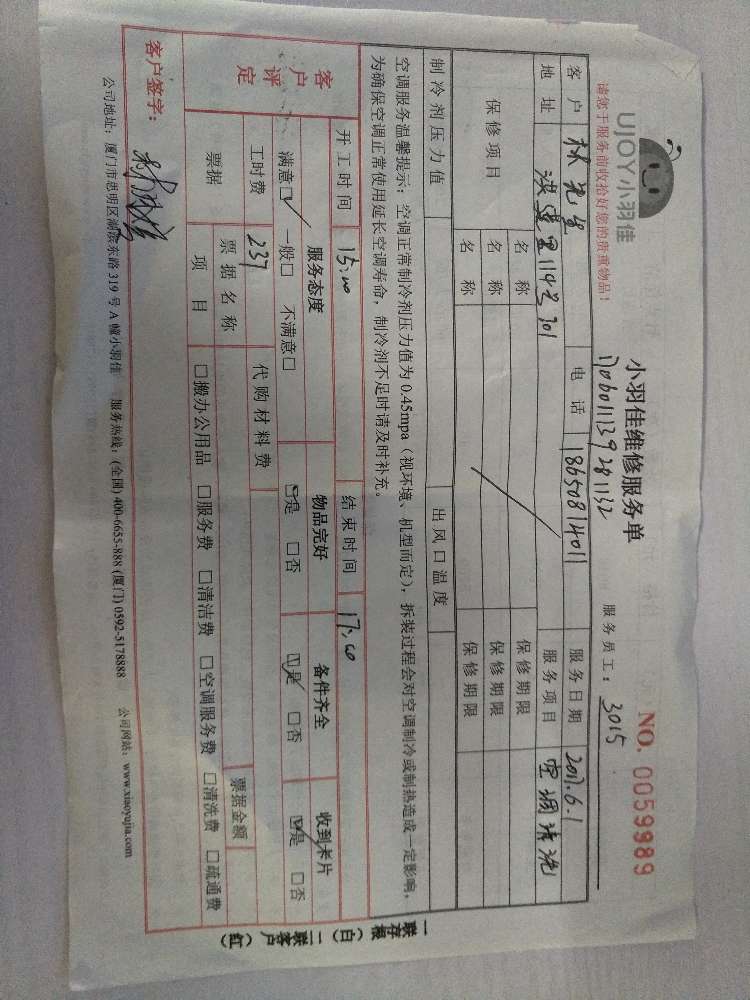 UJOY小羽佳
小羽佳维修服务单
NO. 0059989
170601113928 1132
请您于服务前收拾好您的贵重物品!
服务员工: 3015
客户 林先生 电话 18650814011 服务日期 2017.6.1
地址 119号301 服务项目 空调清洗
保修项目 名称 保修期限
名称 保修期限
名称 保修期限
制冷剂压力值 出风口温度
空调服务温馨提示: 空调正常制冷剂压力值为 0.45mpa (视环境、机型而定), 拆装过程会对空调制冷或制热造成一定影响,
为确保空调正常使用延长空调寿命, 制冷剂不足时请及时补充。
开工时间 15:00 结束时间 17:00
客户评定 服务态度 物品完好 备件齐全 收到卡片
满意□ 一般□ 不满意□ □是 □否 □是 □否 □是 □否
工时费 237 代购材料费
票据 票据名称 票据金额
项目 □搬办公用品 □服务费 □清洁费 □空调服务费 □清洗费 □疏通费
客户签字:
公司地址: 厦门市思明区湖滨东路 319 号 A 幢小羽佳 服务热线: (全国) 400-6655-888 (厦门) 0592-5178888 公司网站: www.xiaoyujia.com
一联存根(白) 二联客户(红)